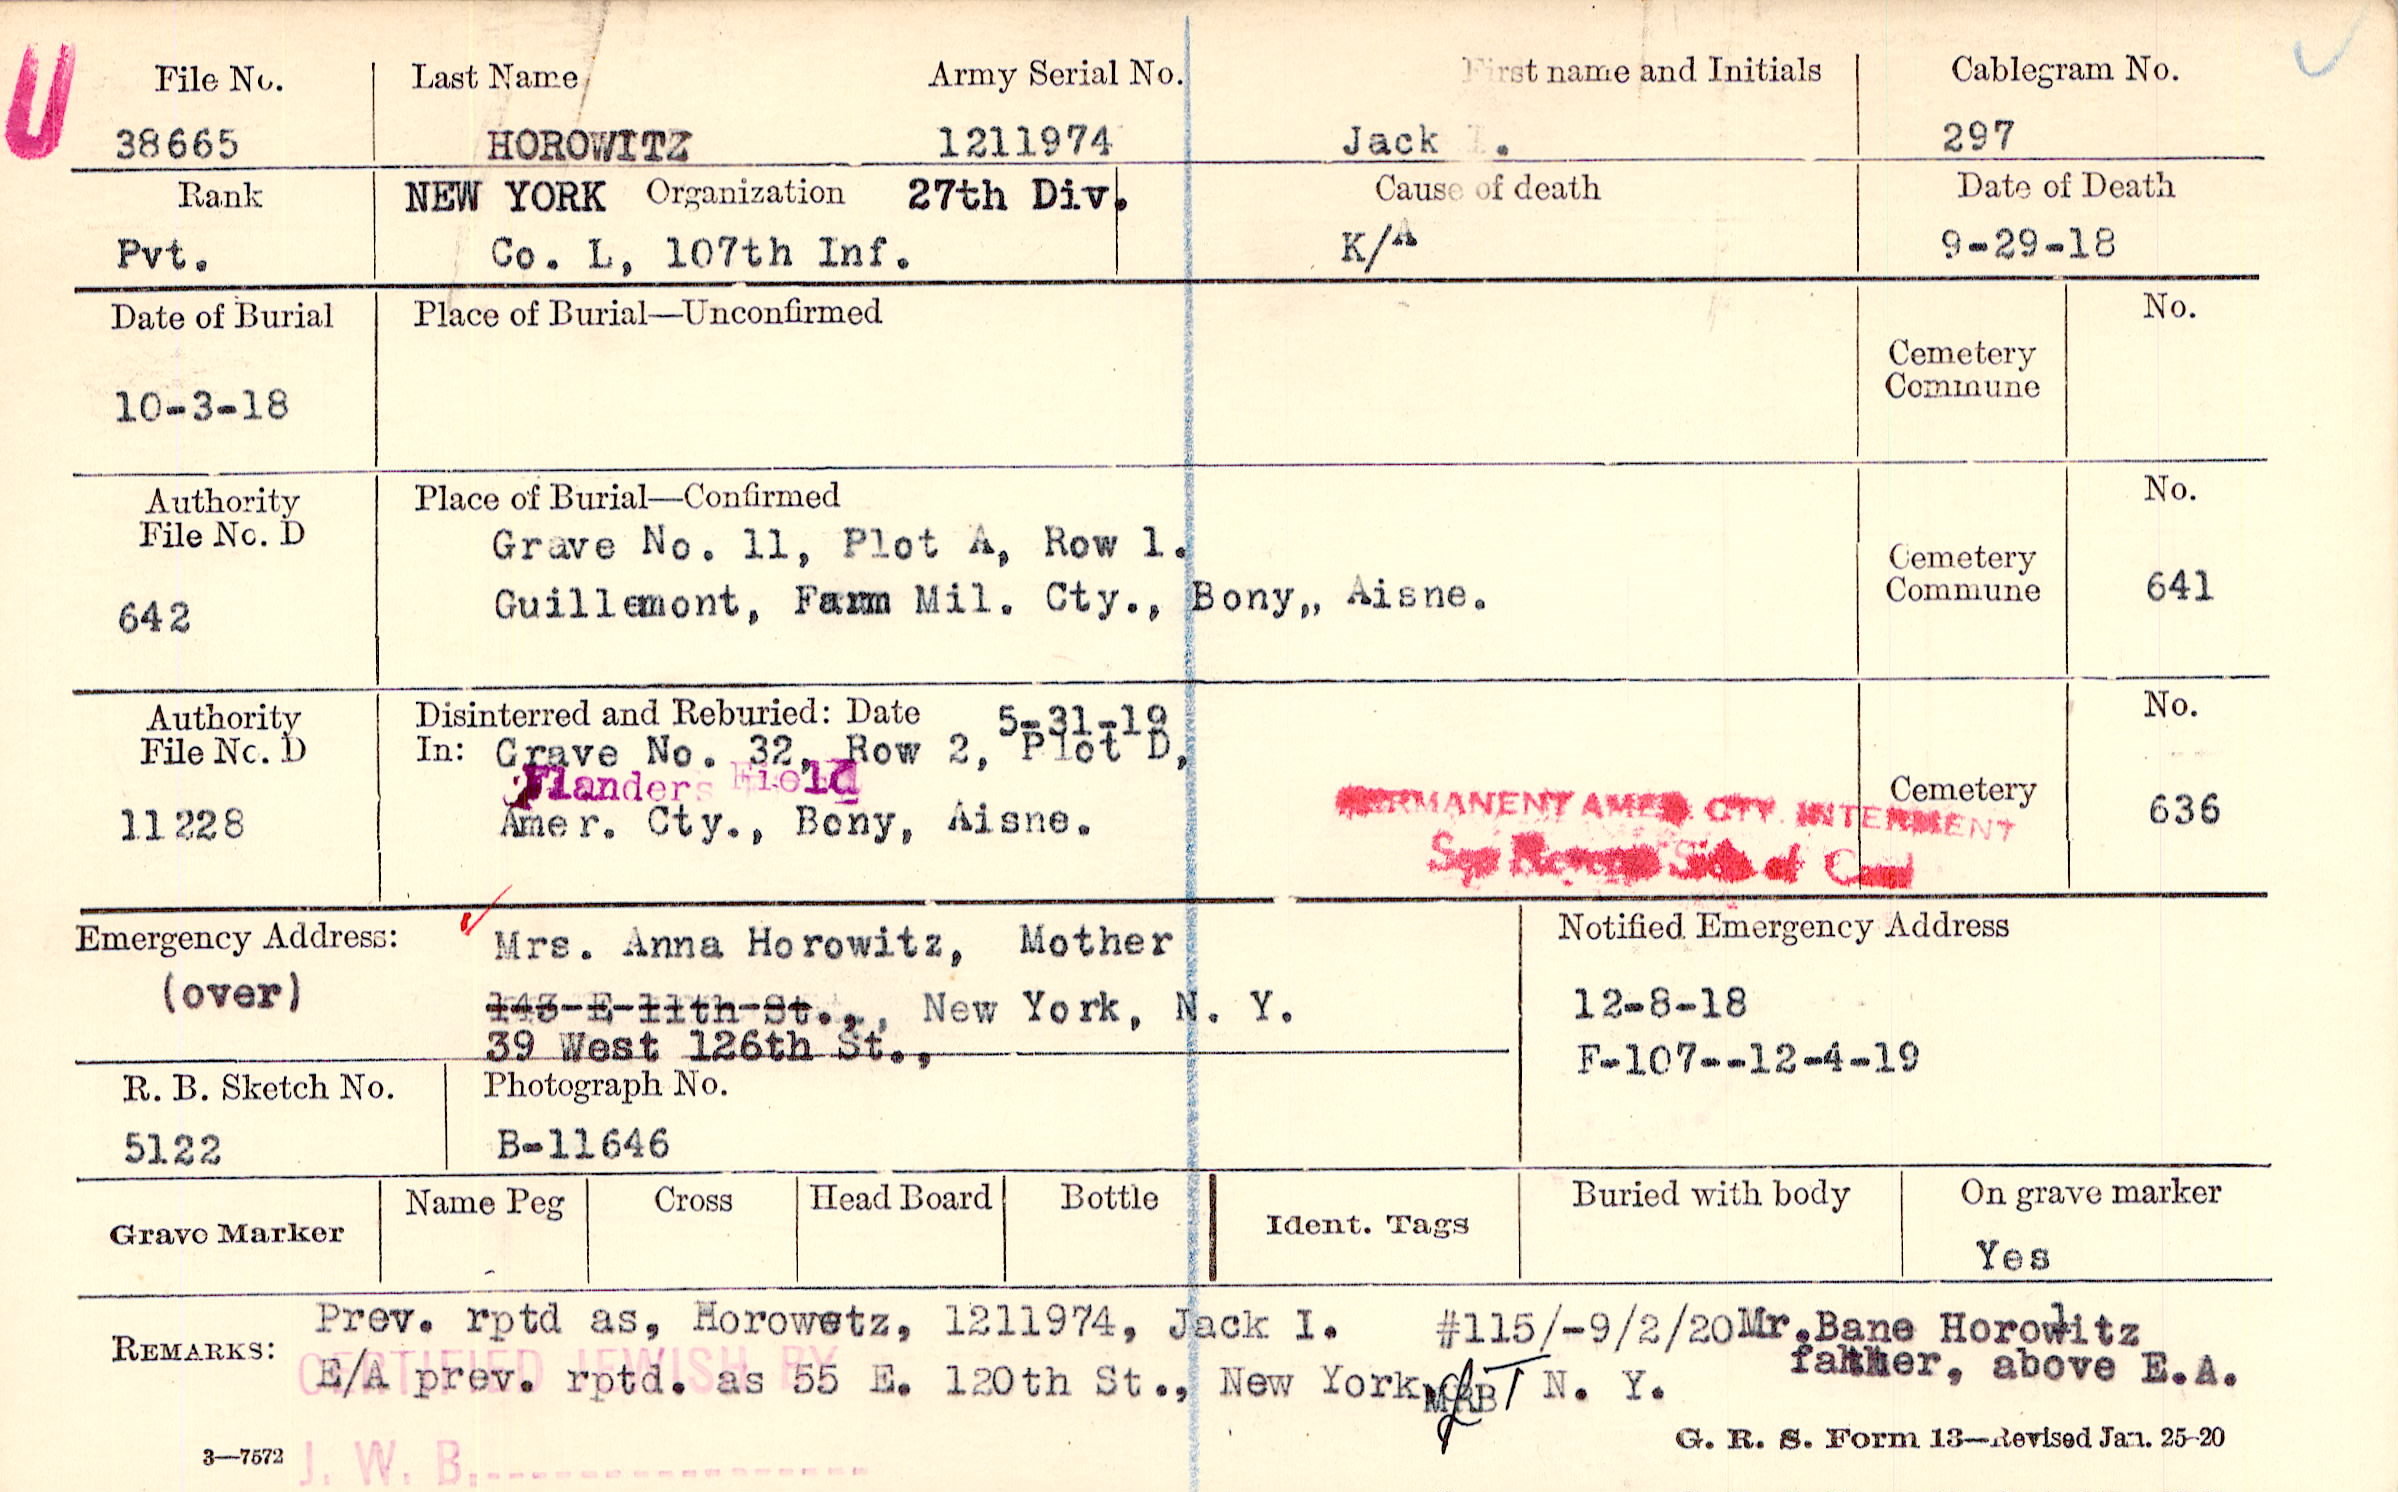 U
File No. Last Name Army Serial No. First name and Initials Cablegram No.
38665 HOROWITZ 1211974 Jack I. 297
Rank NEW YORK Organization 27th Div. Cause of death Date of Death
Pvt. Co. L, 107th Inf. K/A 9-29-18
Date of Burial Place of Burial—Unconfirmed No.
Cemetery
Commune
10-3-18
Authority Place of Burial—Confirmed No.
File No. D
Grave No. 11, Plot A, Row 1.
Cemetery
642 Guillemont, Farm Mil. Cty., Bony,, Aisne. Commune 641
Authority Disinterred and Reburied: Date 5-31-19 No.
File No. D In: Grave No. 32, Row 2, Plot D,
Flanders Field
11228 Amer. Cty., Bony, Aisne. Cemetery 636
PERMANENT AMER. CTY. INTERMENT
See Reverse Side of Card
Emergency Address: Mrs. Anna Horowitz, Mother Notified Emergency Address
(over) 143-E-11th-St.,, New York, N. Y. 12-8-18
39 West 126th St., F-107--12-4-19
R. B. Sketch No. Photograph No.
5122 B-11646
Grave Marker Name Peg Cross Head Board Bottle Ident. Tags Buried with body On grave marker
Yes
REMARKS: Prev. rptd as, Horowetz, 1211974, Jack I. #115/-9/2/20 Mr. Bane Horowitz
father, above E.A.
E/A prev. rptd. as 55 E. 120th St., New York, N. Y.
CERTIFIED JEWISH BY
J. W. B.
3—7572
G. R. S. Form 13—Revised Jan. 25-20